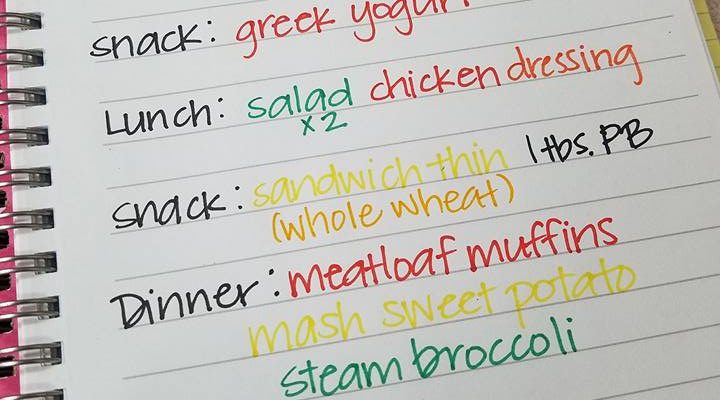 snack: greek yogurt
Lunch: salad chicken dressing
x2
snack: sandwich thin 1 tbs. PB
(whole wheat)
Dinner: meatloaf muffins
mash sweet potato
steam broccoli